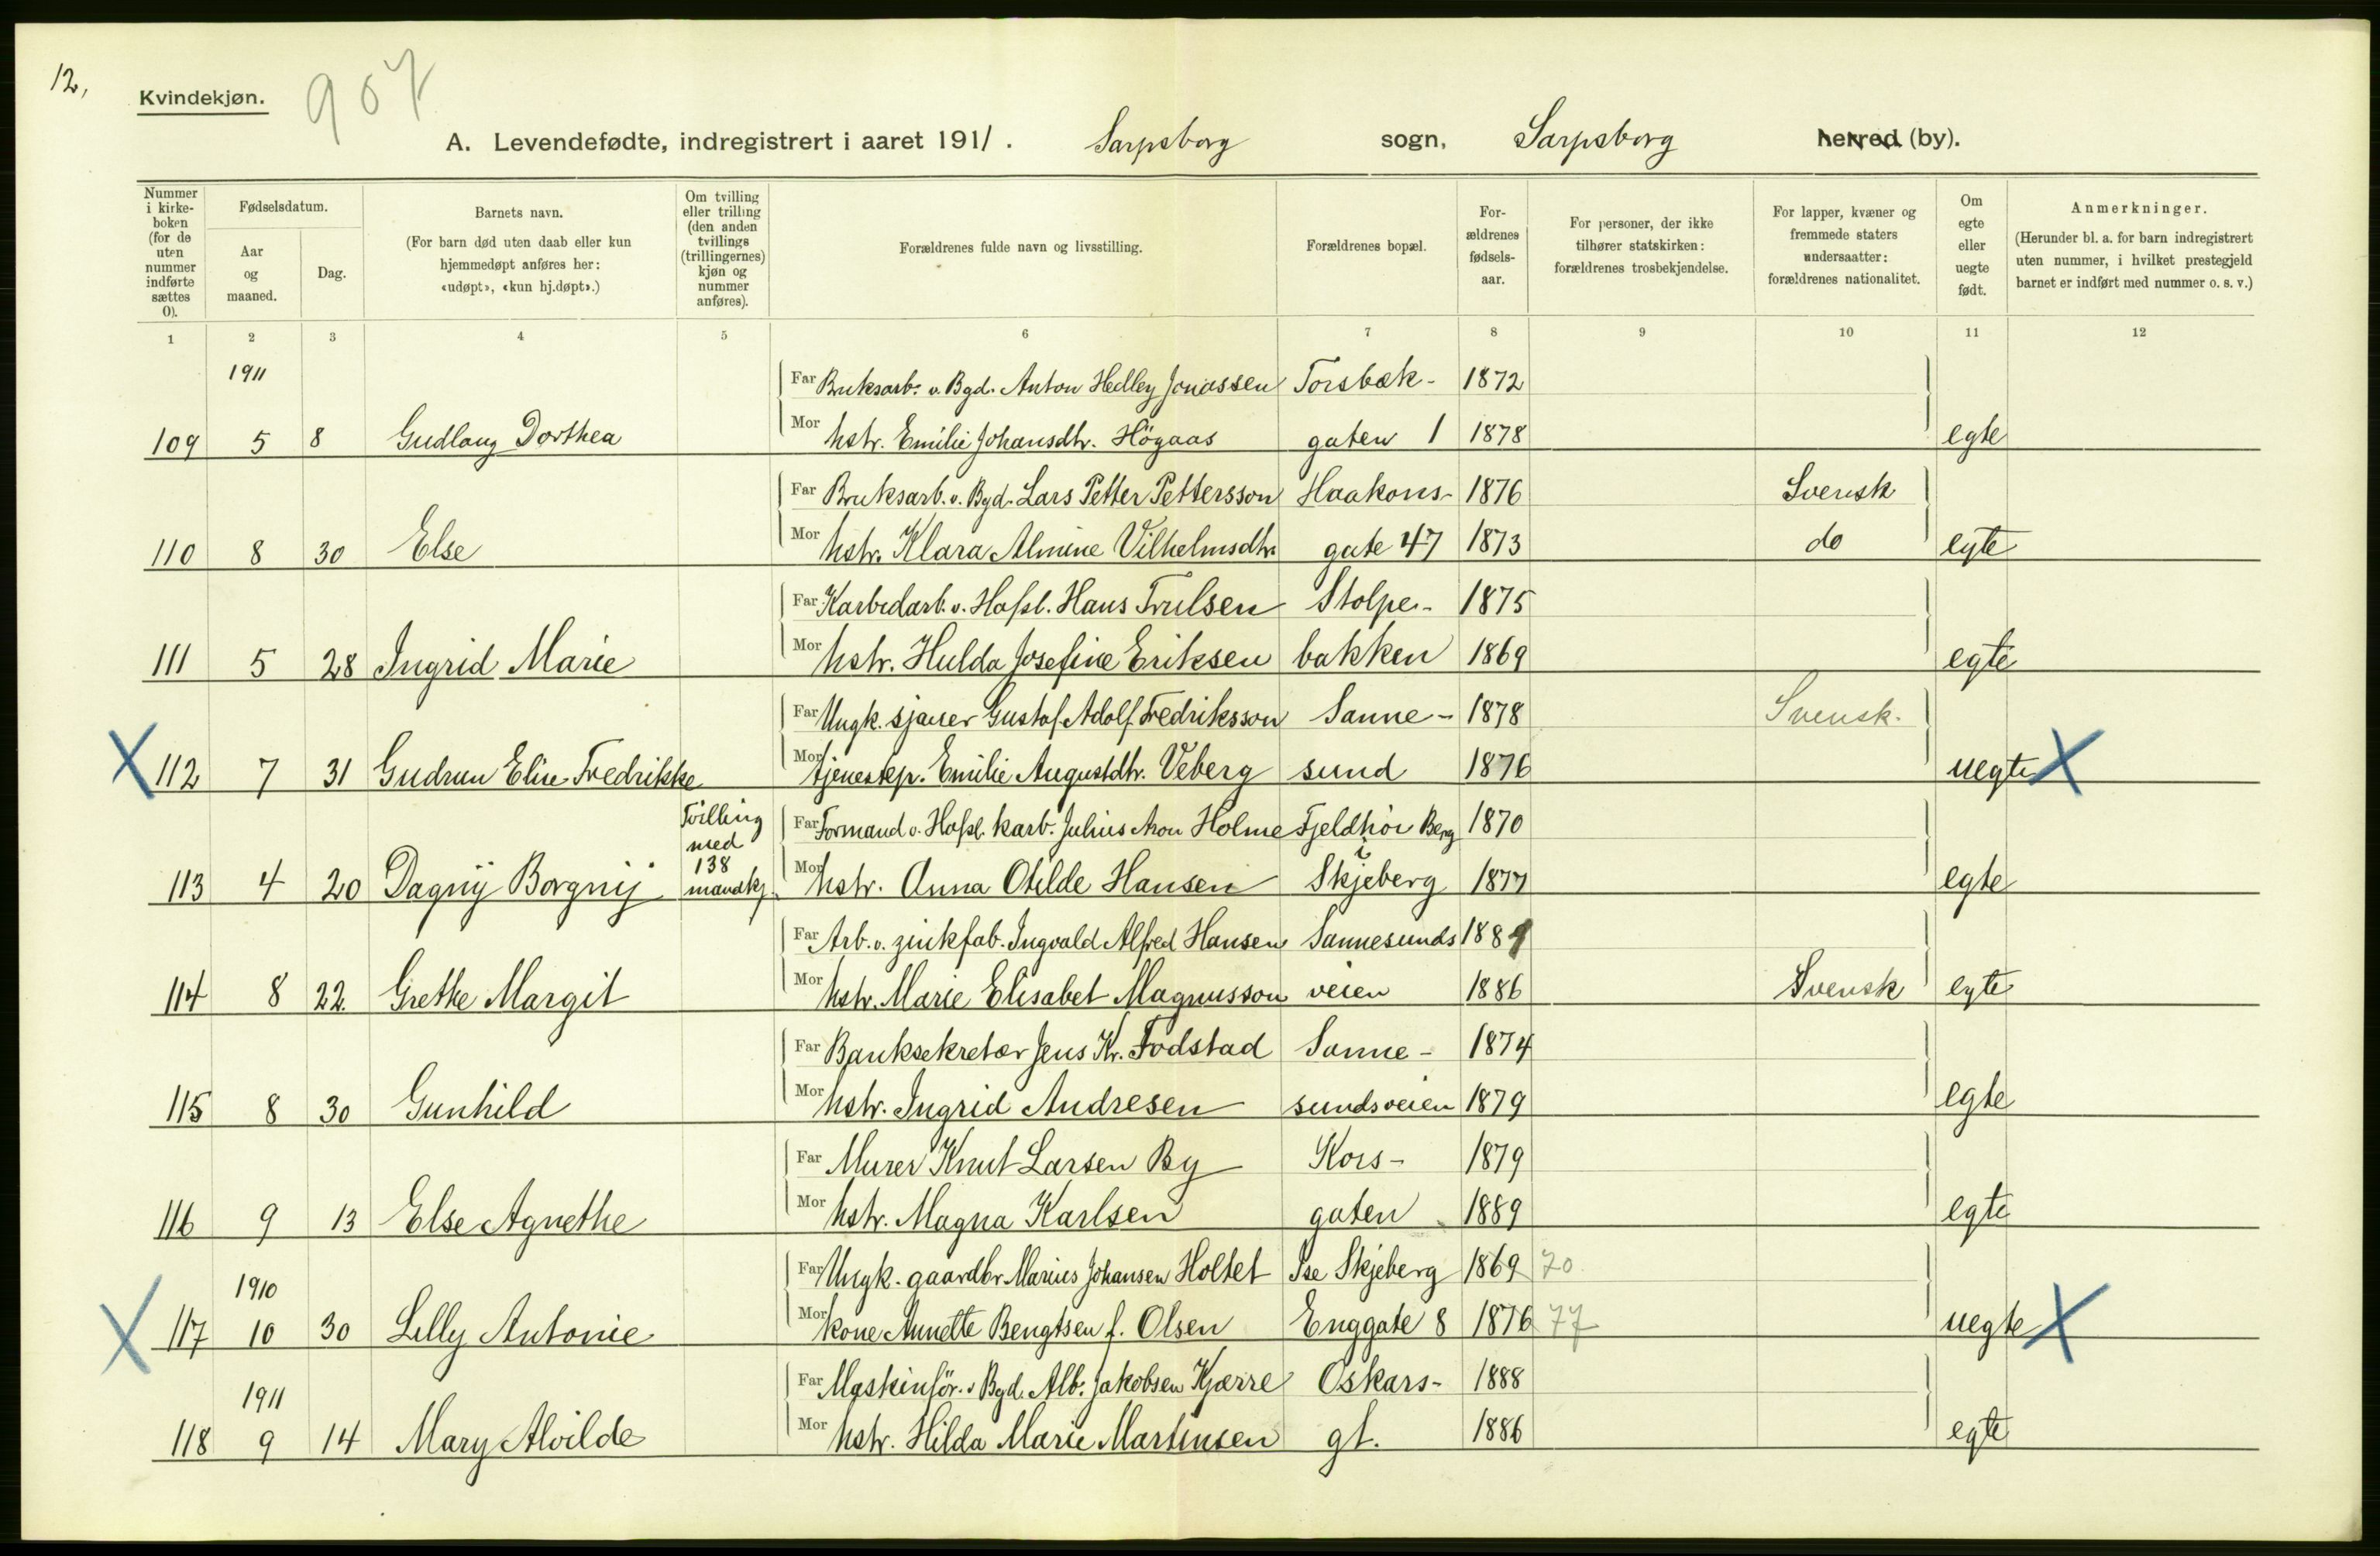 12,
Kvindekjøn.
907
A. Levendefødte, indregistrert i aaret 1911. Sarpsborg sogn, Sarpsborg herred (by).
Nummer i kirkeboken (for de uten nummer indførte sættes 0).
Fødselsdatum.
Aar og maaned.
Dag.
Barnets navn.
(For barn død uten daab eller kun hjemmedøpt anføres her: «udøpt», «kun hj.døpt».)
Om tvilling eller trilling (den anden tvillings (trillingernes) kjøn og nummer anføres).
Forældrenes fulde navn og livsstilling.
Forældrenes bopæl.
For-ældrenes fødsels-aar.
For personer, der ikke tilhører statskirken: forældrenes trosbekjendelse.
For lapper, kvæner og fremmede staters undersaatter: forældrenes nationalitet.
Om egte eller uegte født.
Anmerkninger.
(Herunder bl. a. for barn indregistrert uten nummer, i hvilket prestegjeld barnet er indført med nummer o. s. v.)
1 2 3 4 5 6 7 8 9 10 11 12
1911
Far Bruksarb. v. Bgd. Anton Hedley Jonassen Torsbæk- 1872
109 5 8 Gudlaug Dorthea Mor hstr. Emilie Johansdtr. Högaas gaten 1 1878 egte
Far Bruksarb. v. Bgd. Lars Petter Pettersson Haakons- 1876 Svensk
110 8 30 Else Mor hstr. Klara Almine Vilhelmsdtr. gate 47 1873 do egte
Far Karbidarb. v. Hafsl. Hans Trulsen Stolpe- 1875
111 5 28 Ingrid Marie Mor hstr. Hulda Josefine Eriksen bakken 1869 egte
Far Ungk. sjauer Gustaf Adolf Fredriksson Sanne- 1878 Svensk.
X 112 7 31 Gudrun Elise Fredrikke Mor tjenestep. Emilie Augustdtr. Veberg sund 1876 uegte X
Tvilling med 138 mandkj.
Far Formand v. Hafsl. karb. Julius Aron Holme Fjeldhöi Berg i 1870
113 4 20 Dagny Borgny Mor hstr. Anna Otilde Hansen Skjeberg 1877 egte
Far Arb. v. zinkfab. Ingvald Alfred Hansen Sannesunds 1889
114 8 22. Grethe Margit Mor hstr. Marie Elisabet Magnusson veien 1886 Svensk egte
Far Banksekretær Jens Kr. Fodstad Sanne- 1874
115 8 30 Gunhild Mor hstr. Ingrid Andresen sundsveien 1879 egte
Far Murer Knut Larsen By Kors- 1879
116 9 13 Else Agnethe Mor hstr. Magna Karlsen gaten 1889 egte
1910
Far Ungk. gaardbr. Marius Johansen Holtet Ise Skjeberg 1869 70
X 117 10 30 Lilly Antonie Mor kone Annette Bengtsen f. Olsen Enggate 8 1876 77 uegte X
1911
Far Maskinför. v. Bgd. Alb. Jakobsen Kjærre Oskars- 1888
118 9 14 Mary Alvilde Mor hstr. Hilda Marie Martinsen gt. 1886 egte